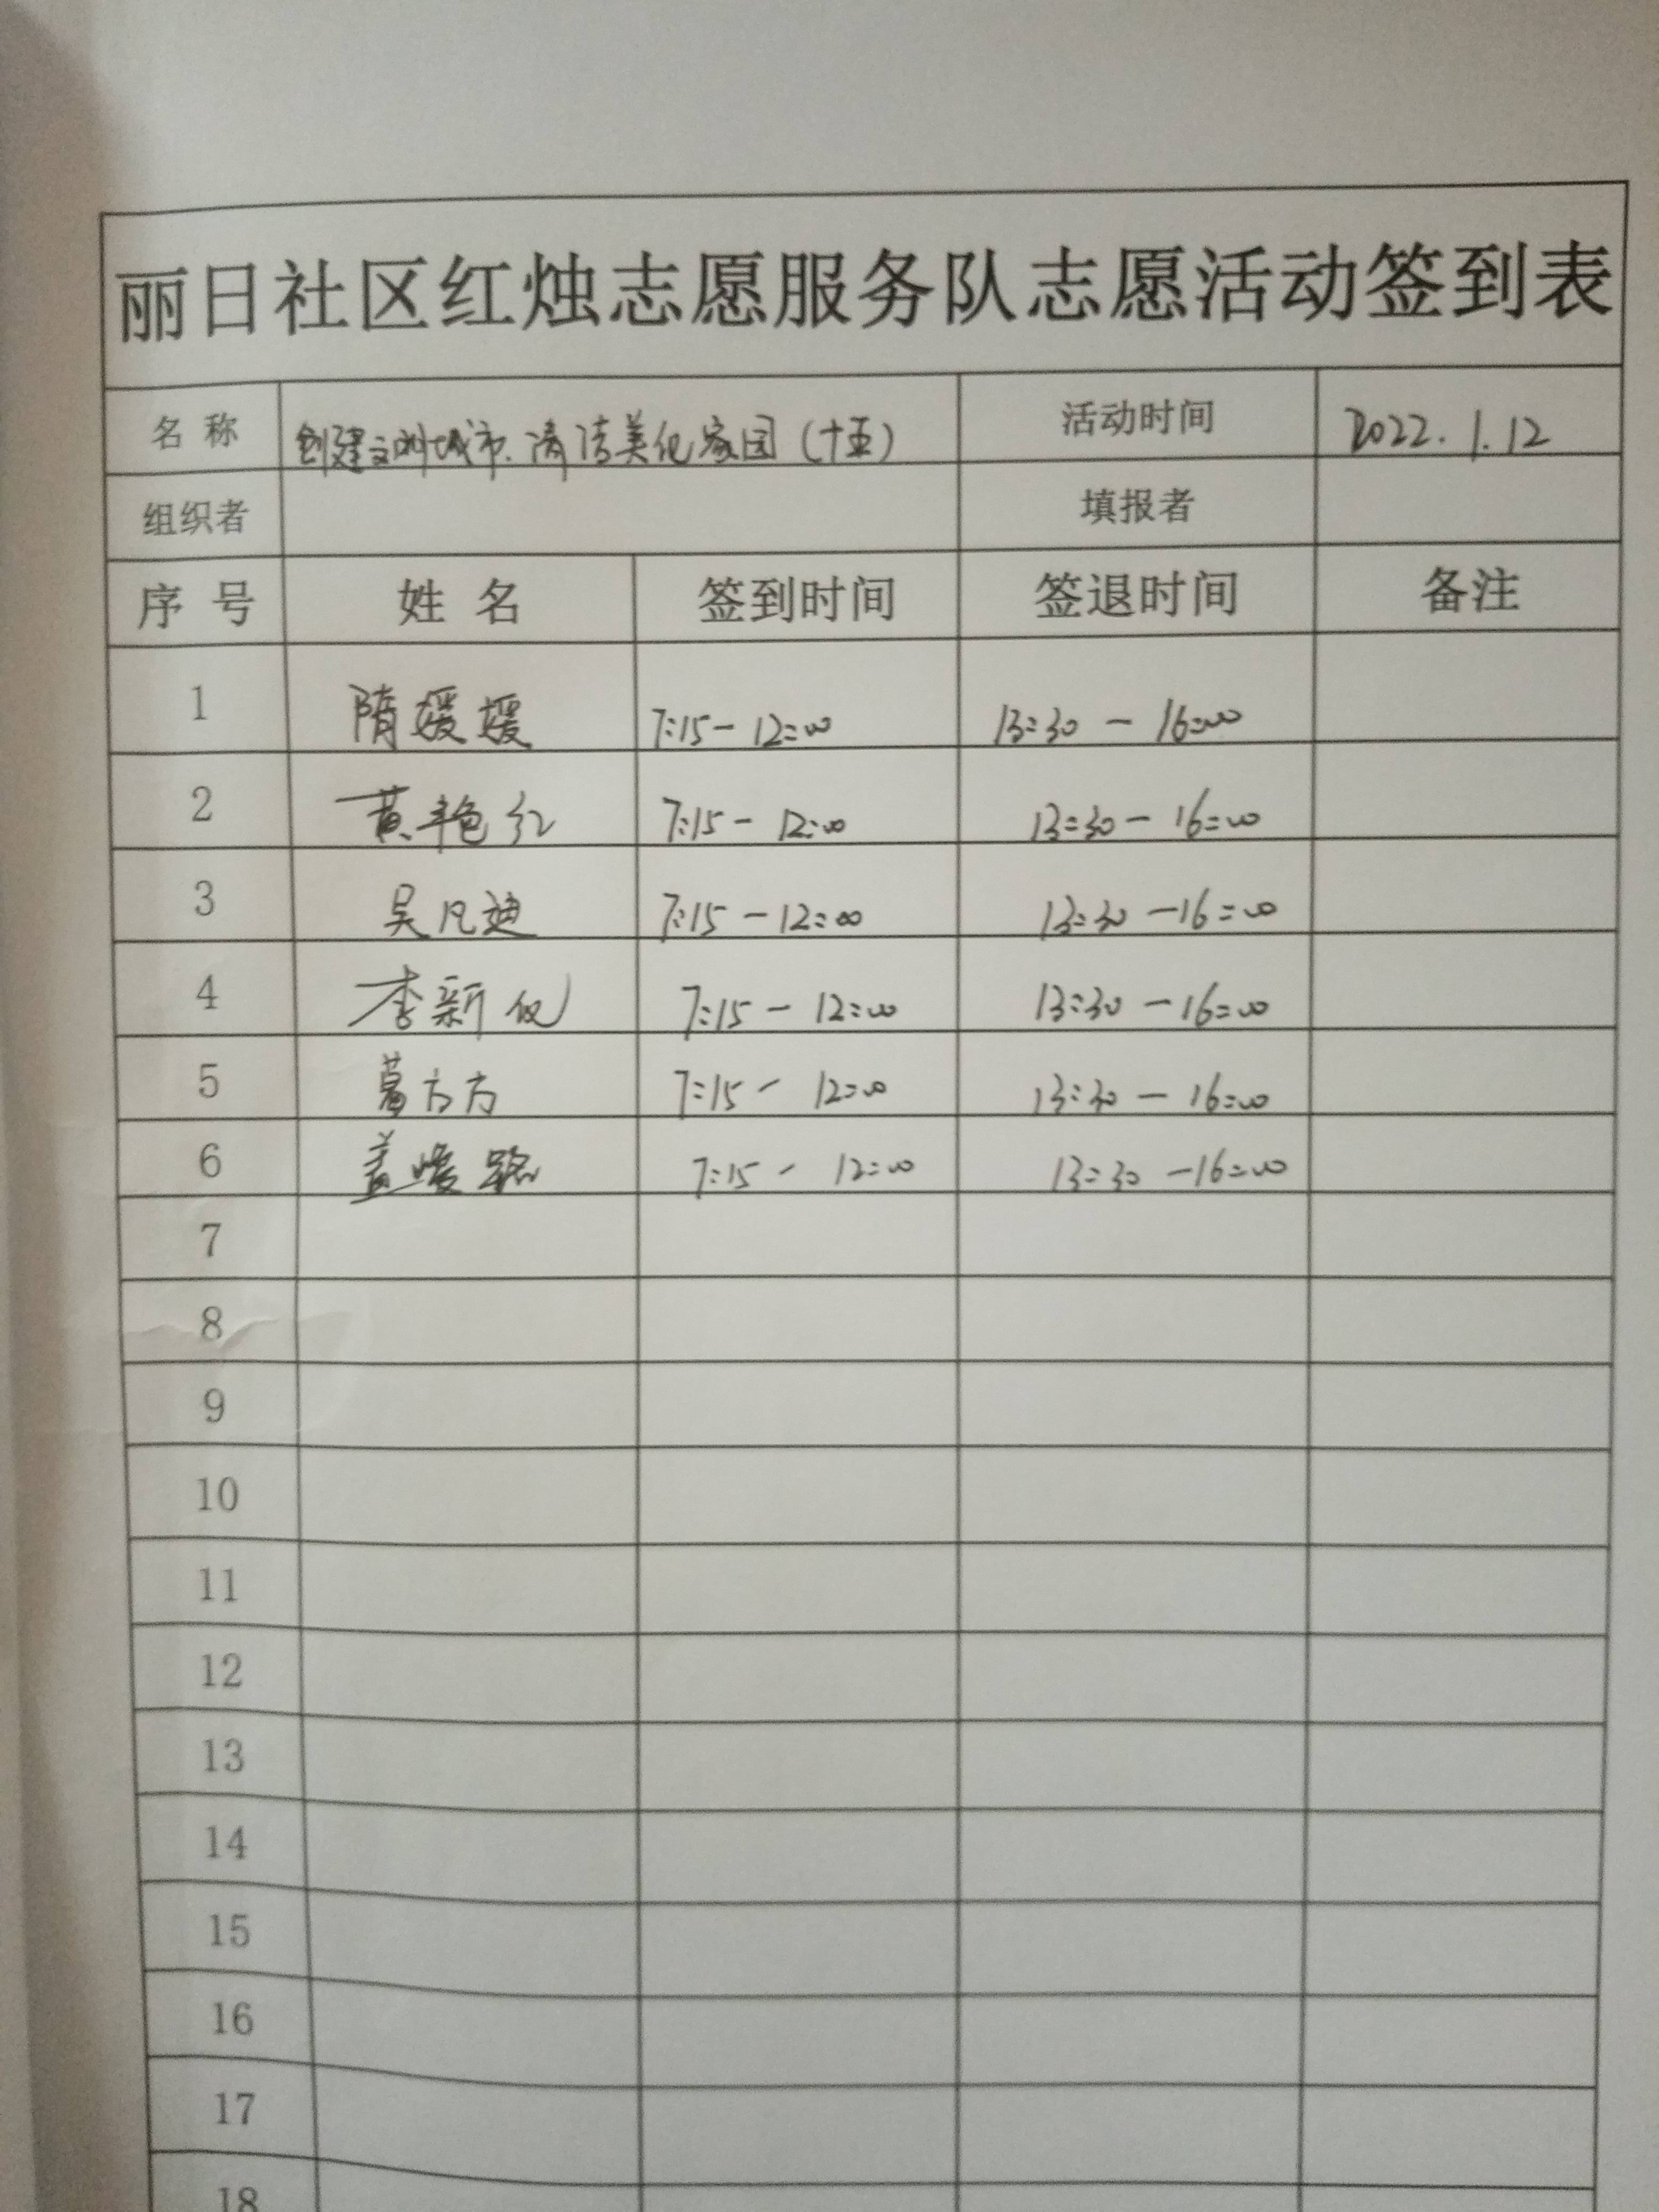 丽日社区红烛志愿服务队志愿活动签到表
名 称 创建文明城市.清洁美化家园(十五) 活动时间 2022.1.12
组织者 填报者
序 号 姓 名 签到时间 签退时间 备注
1 隋媛媛 7:15-12:00 13:30-16:00
2 黄艳红 7:15-12:00 13:30-16:00
3 吴凡迪 7:15-12:00 13:30-16:00
4 李新 7:15-12:00 13:30-16:00
5 葛方方 7:15-12:00 13:30-16:00
6 盖 7:15-12:00 13:30-16:00
7
8
9
10
11
12
13
14
15
16
17
18